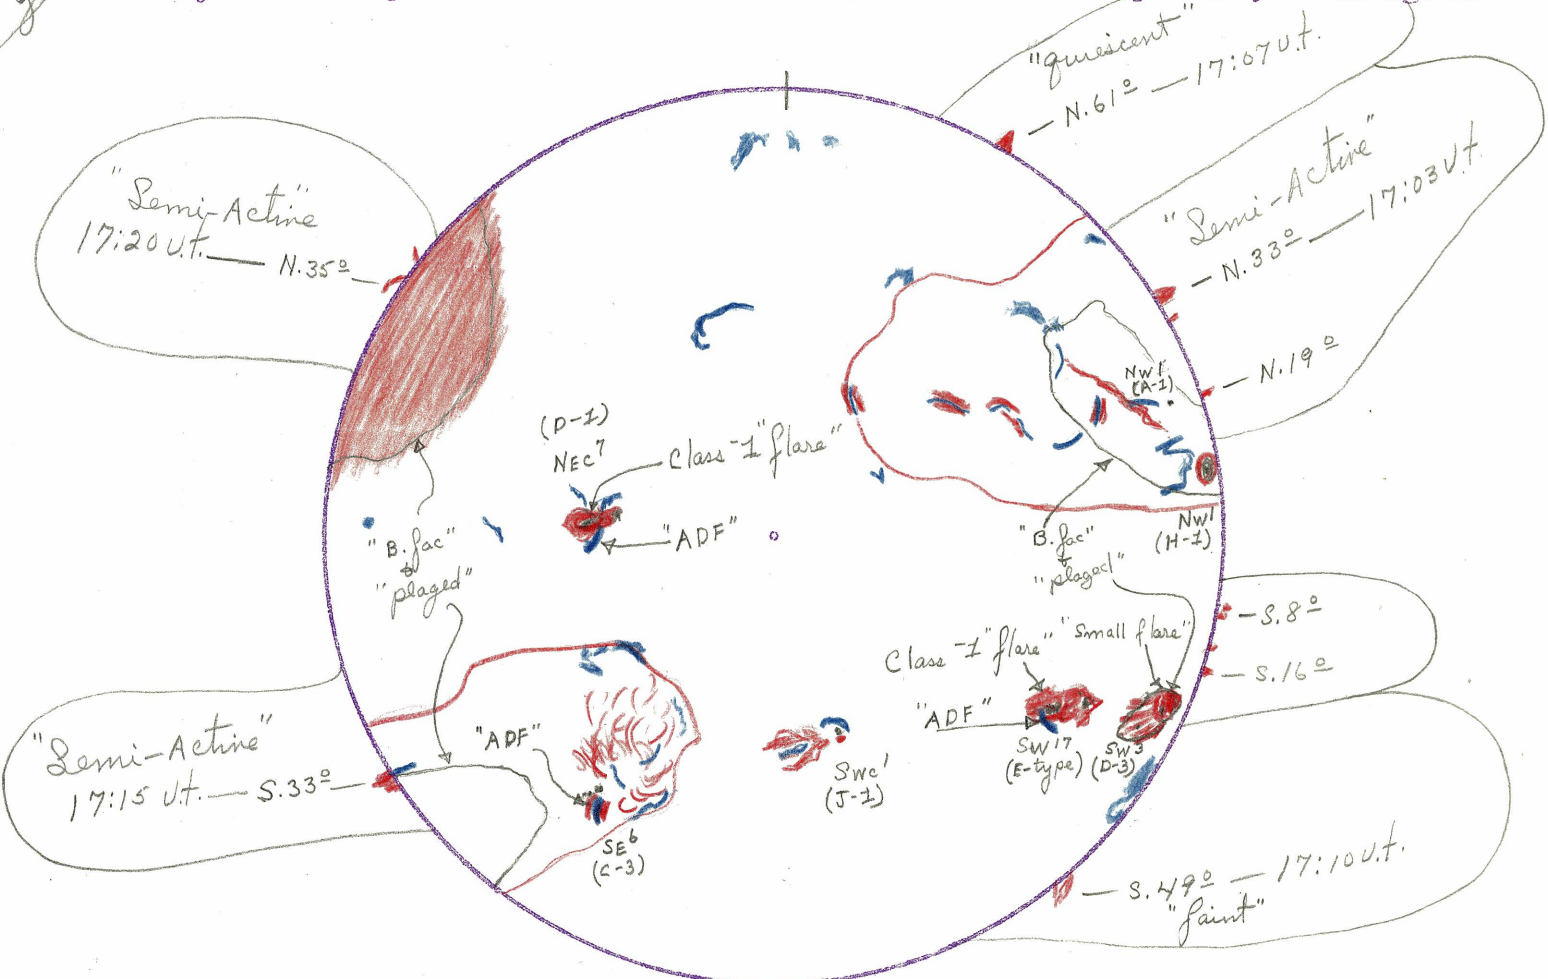 "quiescent"
— N.61º — 17:07 U.t.
"Semi-Active"
— N.33º — 17:03 U.t.
— N.19º
"Semi-Active"
17:20 U.t. — N.35º
NW1
(A-1)
(D-1)
NEC7
Class-1 "flare"
"ADF"
"B.fac"
&
"plaged"
NW1
(H-1)
"B.fac"
&
"plaged"
— S.8º
— S.16º
Class-1 "flare"
"Small flare"
"ADF"
SW17
(E-type)
SW3
(D-3)
"Semi-Active"
17:15 U.t. — S.33º —
"ADF"
SE6
(C-3)
SWC1
(J-1)
— S.49º — 17:10 U.t.
"faint"